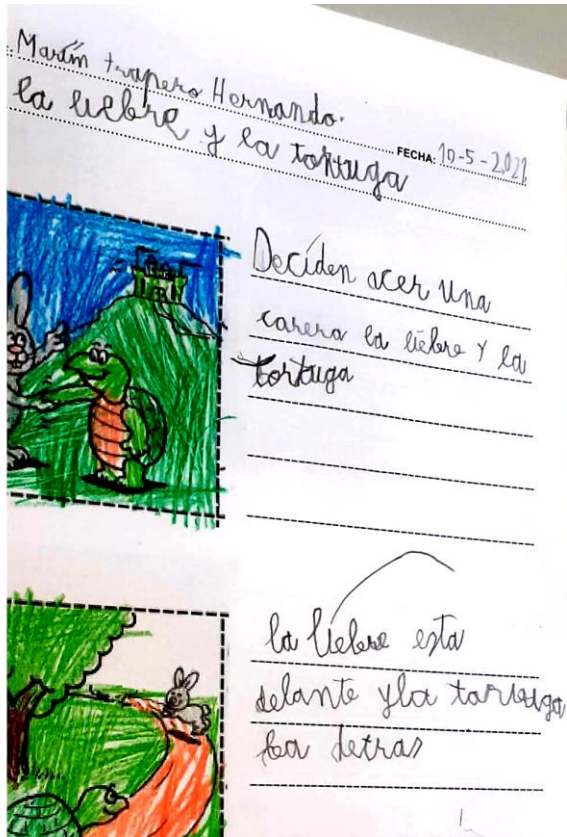 Martín trapero Hernando.
la liebre y la tortuga
FECHA: 10-5-2021
Deciden acer una
carera la liebre y la
tortuga
la liebre esta
delante y la tortuga
ba detras